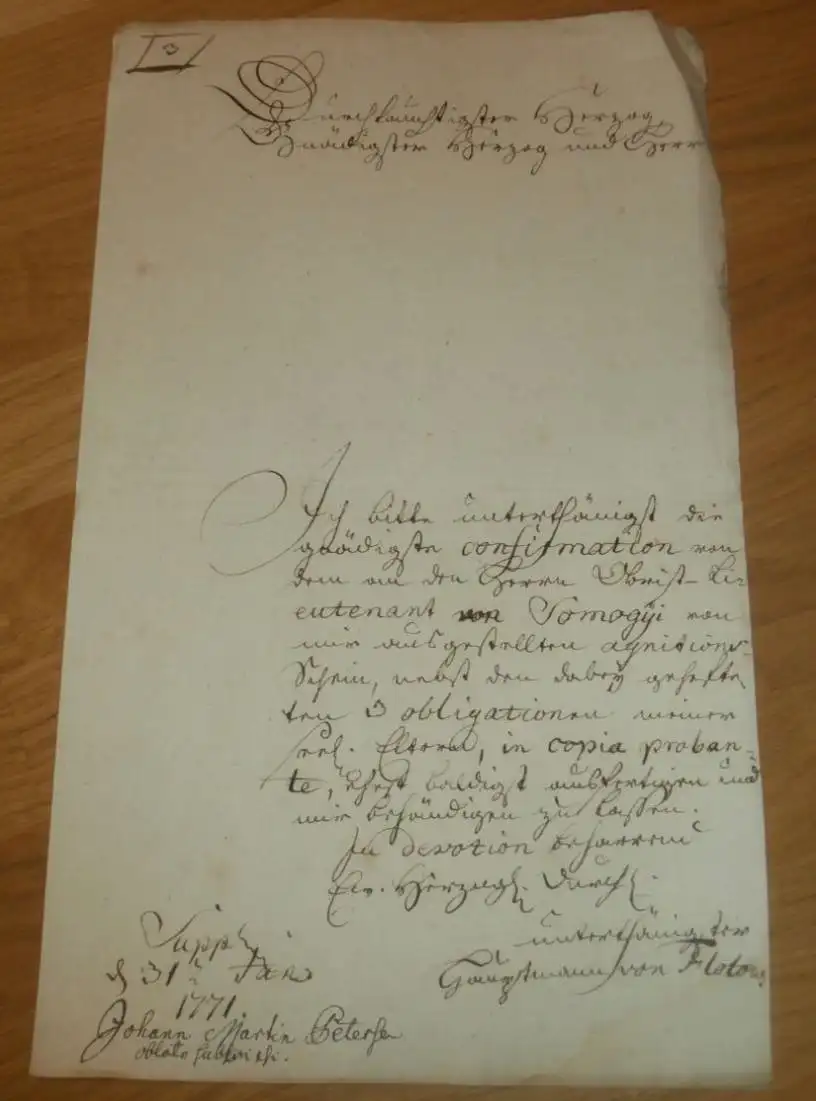 3
Durchlauchtigster Herzog,
Gnädigster Herzog und Herr
Ich bitte unterthänigst die
gnädigste confirmation von
dem an den Herrn Obrist-Li-
eutenant von Somogÿi von
mir ausgestellten agnitions-
Schein, nebst den dabey gehefte-
ten 3 obligationen meiner
seel. Eltern, in copia proban-
te, baldigst ausfertigen und
mir behändigen zu lassen.
In devotion beharrend
Ew. Herzogl. Durchl.
unterthänigster
Hauptmann von Flotow
Suppl.
d 31 Jan
1771
Johann Martin Petersen